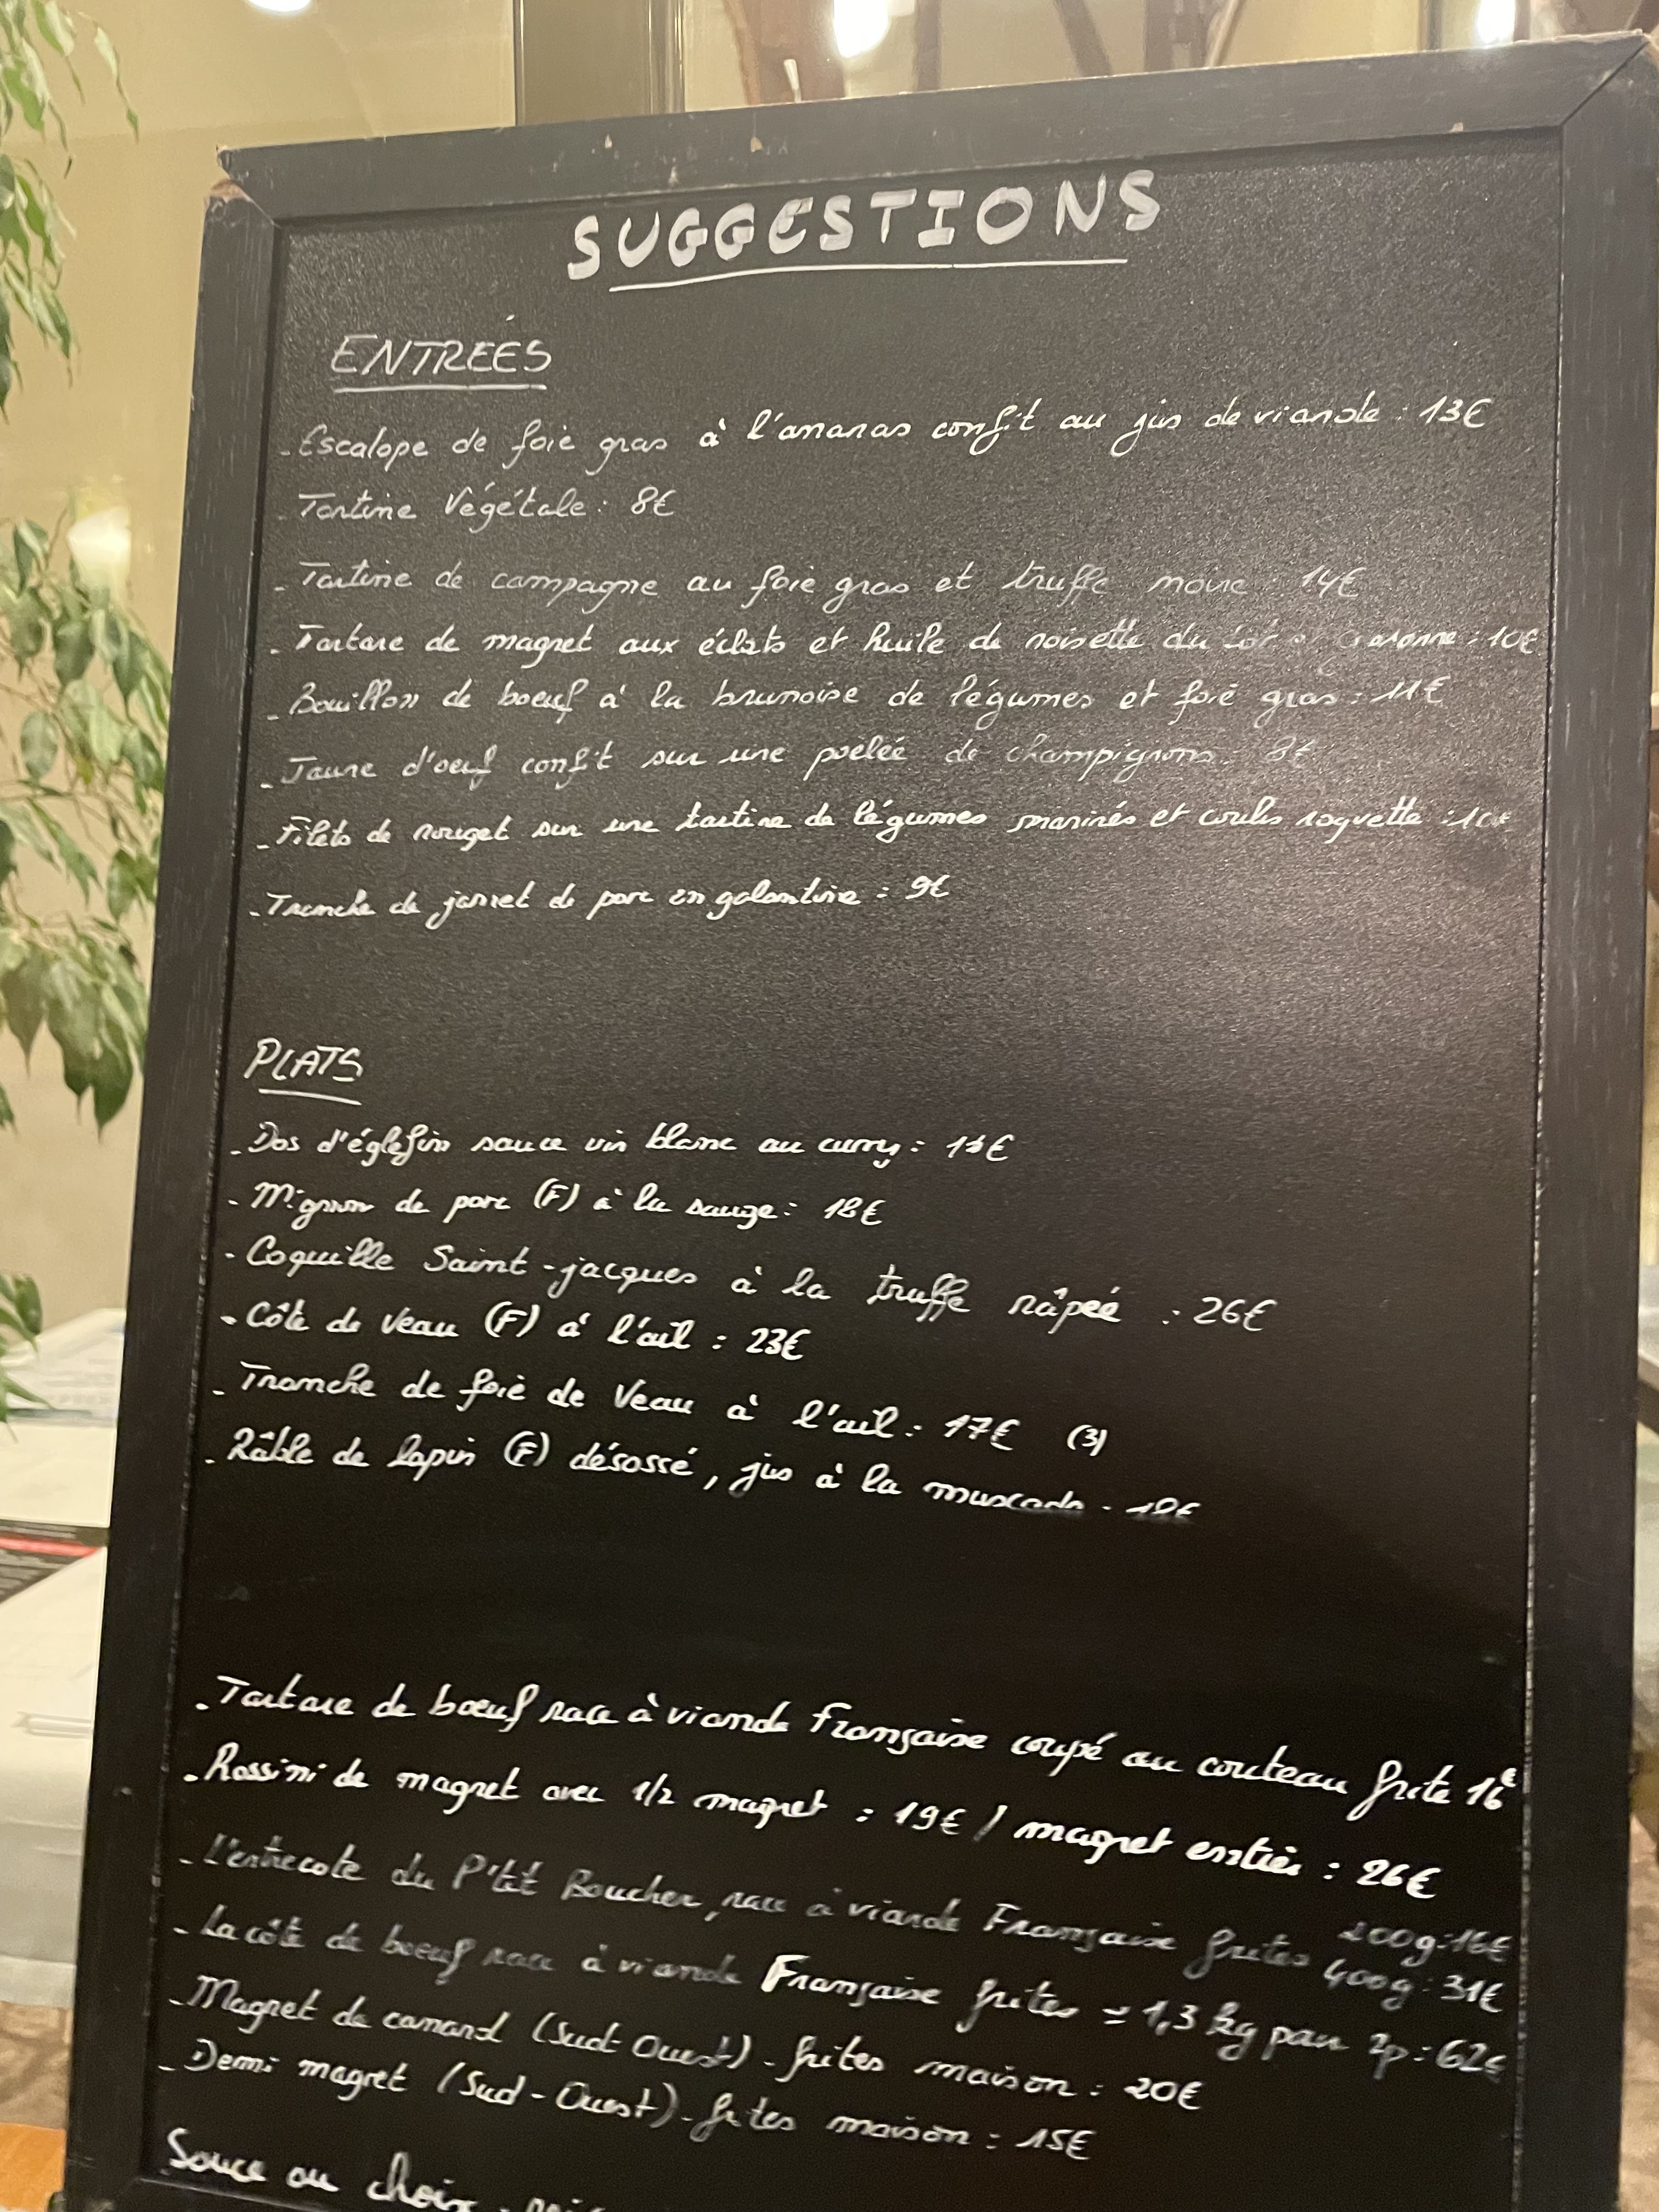 SUGGESTIONS
ENTREÉS
- Escalope de foie gras à l'ananas confit au jus de viande : 13€
- Tartine Végétale : 8€
- Tartine de campagne au foie gras et truffe noire : 14€
- Tartare de magret aux éclats et huile de noisette du Lot Garonne : 10€
- Bouillon de boeuf à la brunoise de légumes et foie gras : 11€
- Jaune d'oeuf confit sur une poêlée de champignons : 8€
- Filets de rouget sur une tartine de légumes marinés et coulis roquette : 10€
- Tranche de jarret de porc en galantine : 9€
PLATS
- Dos d'églefin sauce vin blanc au curry :
- Mignon de porc (F) à la sauge : 18€
- Coquille Saint-jacques à la truffe râpée : 26€
- Côte de veau (F) à l'ail : 23€
- Tranche de foie de Veau à l'ail : 17€ (3)
- Râble de lapin (F) désossé, jus à la muscade : 18€
- Tartare de bœuf race à viande Française coupé au couteau frite 16€
- Rossini de magret avec 1/2 magret : 19€ / magret entier : 26€
- L'entrecote du P'tit Boucher, race à viande Française frites 200g : 16€
400g : 31€
- La côte de boeuf race à viande Française frites ≃ 1,3 kg pour 2p : 62€
- Magret de canard (Sud-Ouest) - frites maison : 20€
- Demi magret (Sud-Ouest) - frites maison : 15€
Sauce au choix :